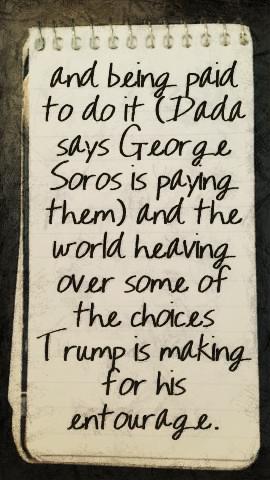 and being paid
to do it (Dada
says George
Soros is paying
them) and the
world heaving
over some of
the choices
Trump is making
for his
entourage.